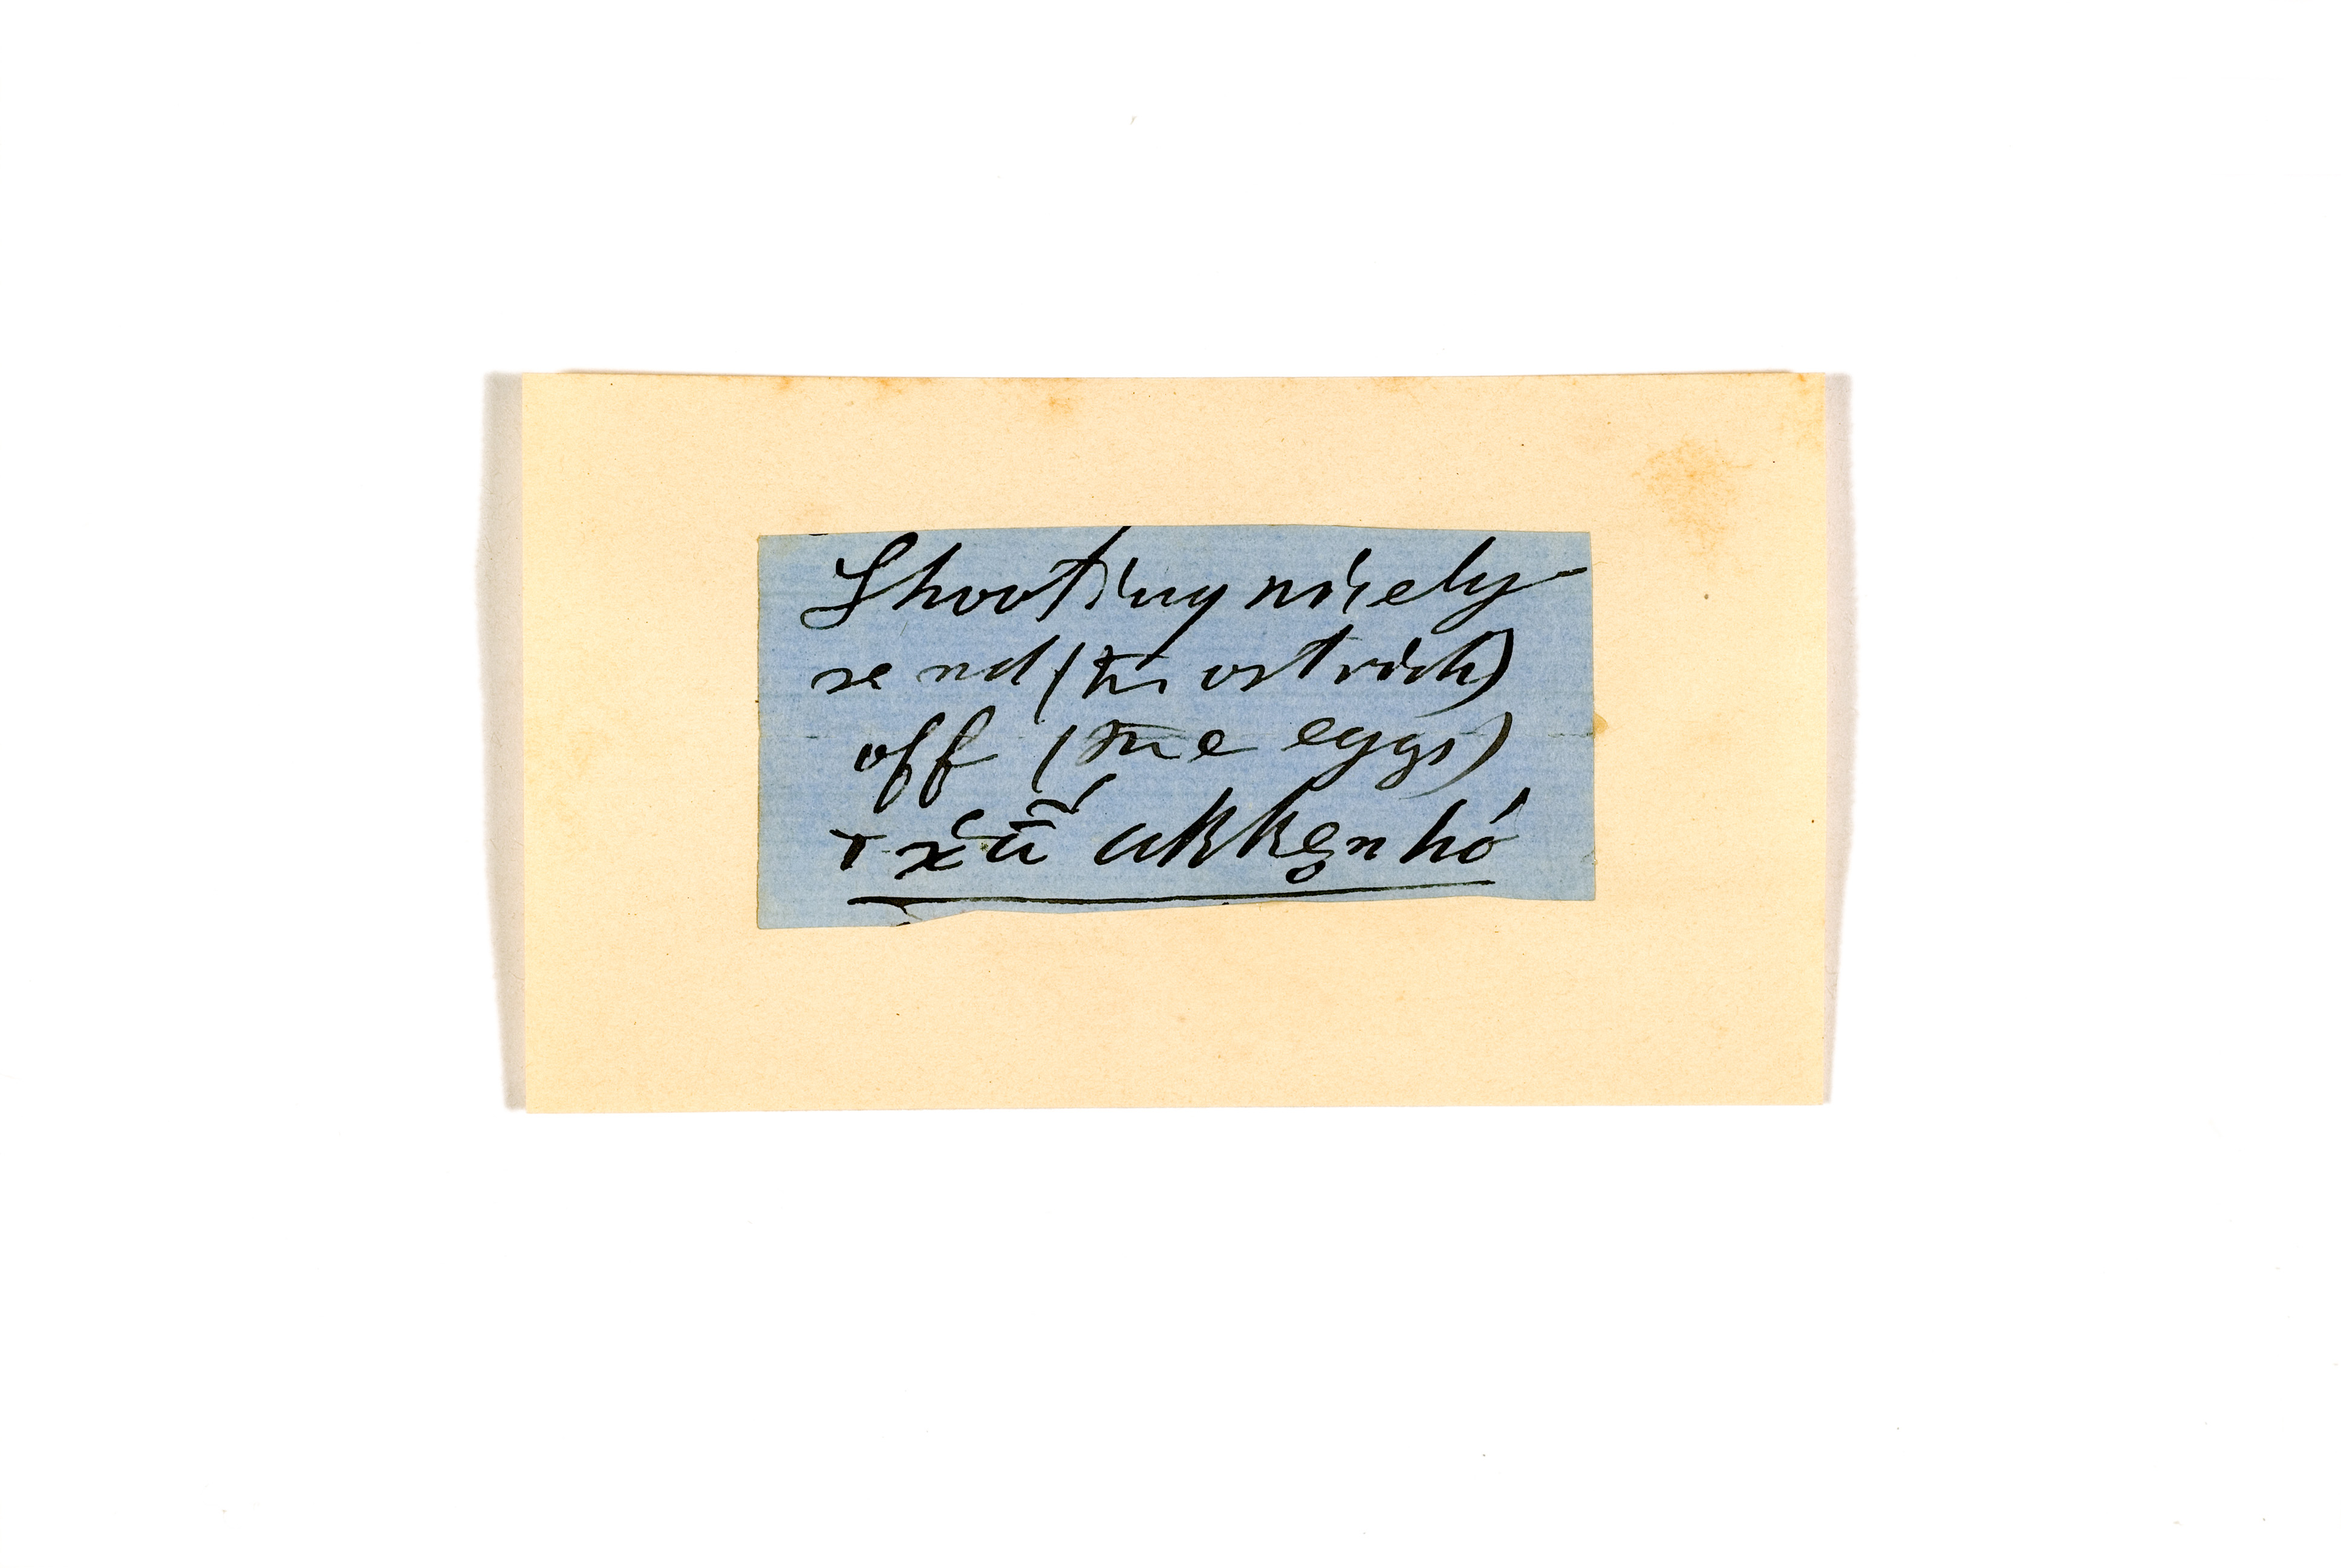 Shooting nicely
send (the ostrich)
off (the eggs)
+ x̆ū̃ ukkẹnhó